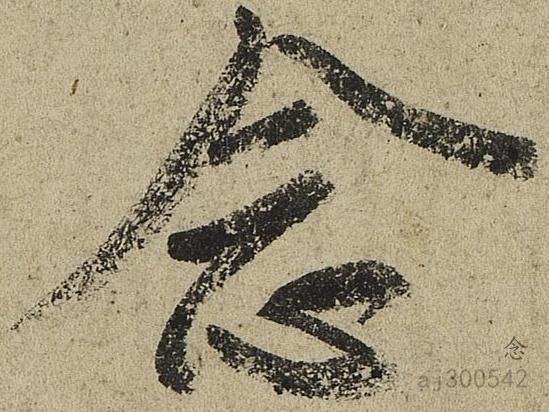 念
念
aj300542